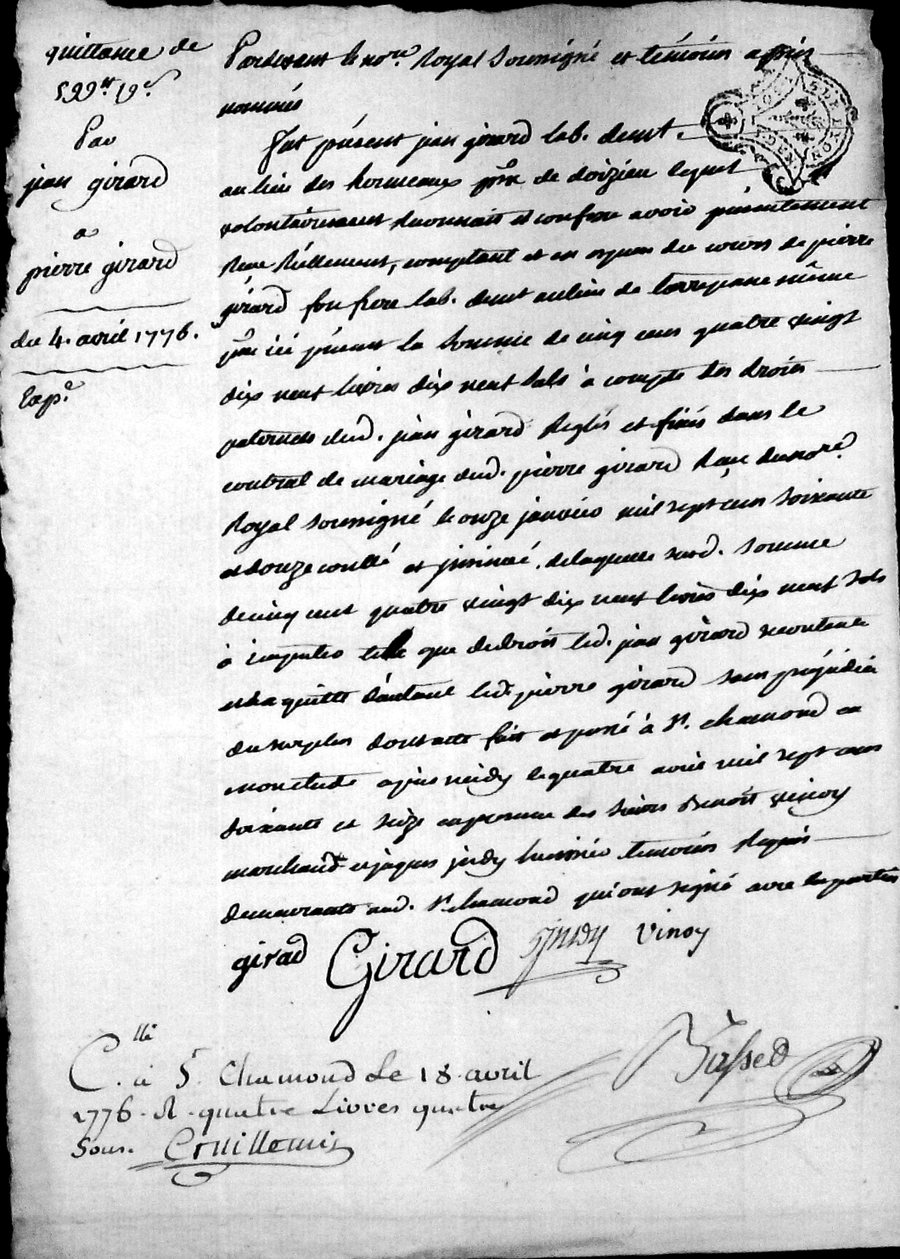 quittance de
599ᵗᵗ 19ˢ
Par
jean girard
a
pierre girard
du 4. avril 1776.
Exp.ᵉ
Pardevant le no.ʳᵉ Royal Soussigné et témoins après
nommés
fut présent jean girard lab. demt.
au lieu des hormeaux psse de doizieu lequel
volontairement reconnait et confesse avoir présentement
Receu Réellement, comptant et en espèces du cours de pierre
girard son frere lab. demt au lieu de même
psse ici présent la Somme de cinq cens quatre vingt
dix neuf livres dix neuf sols à compte des droits
paternels dud. jean girard Réglés et fixés dans le
contrat de mariage dud. pierre girard Reçu du no.ʳᵉ
Royal Soussigné le onze janvier mil sept cens soixante
et douze conllé et insinué. de laquelle susd. Somme
de cinq cent quatre vingt dix neuf livres dix neuf sols
à imputer telle que de droit led. jean girard se contente
et en quitte d'autant led. pierre girard sans préjudice
du surplus dont acte fait et passé à St. chamond en
mon etude après midy le quatre avril mil sept cens
soixante et seize en presence des Sieurs Benoît vinoy
marchand et jaques judy huissier temoins Requis
demeurants aud. St. chamond qui ont signé avec les parties
girad Girard judy vinoy
C.ˡˡᵉ à St. Chamond Le 18 avril
1776. R. quatre Livres quatre
Sous.